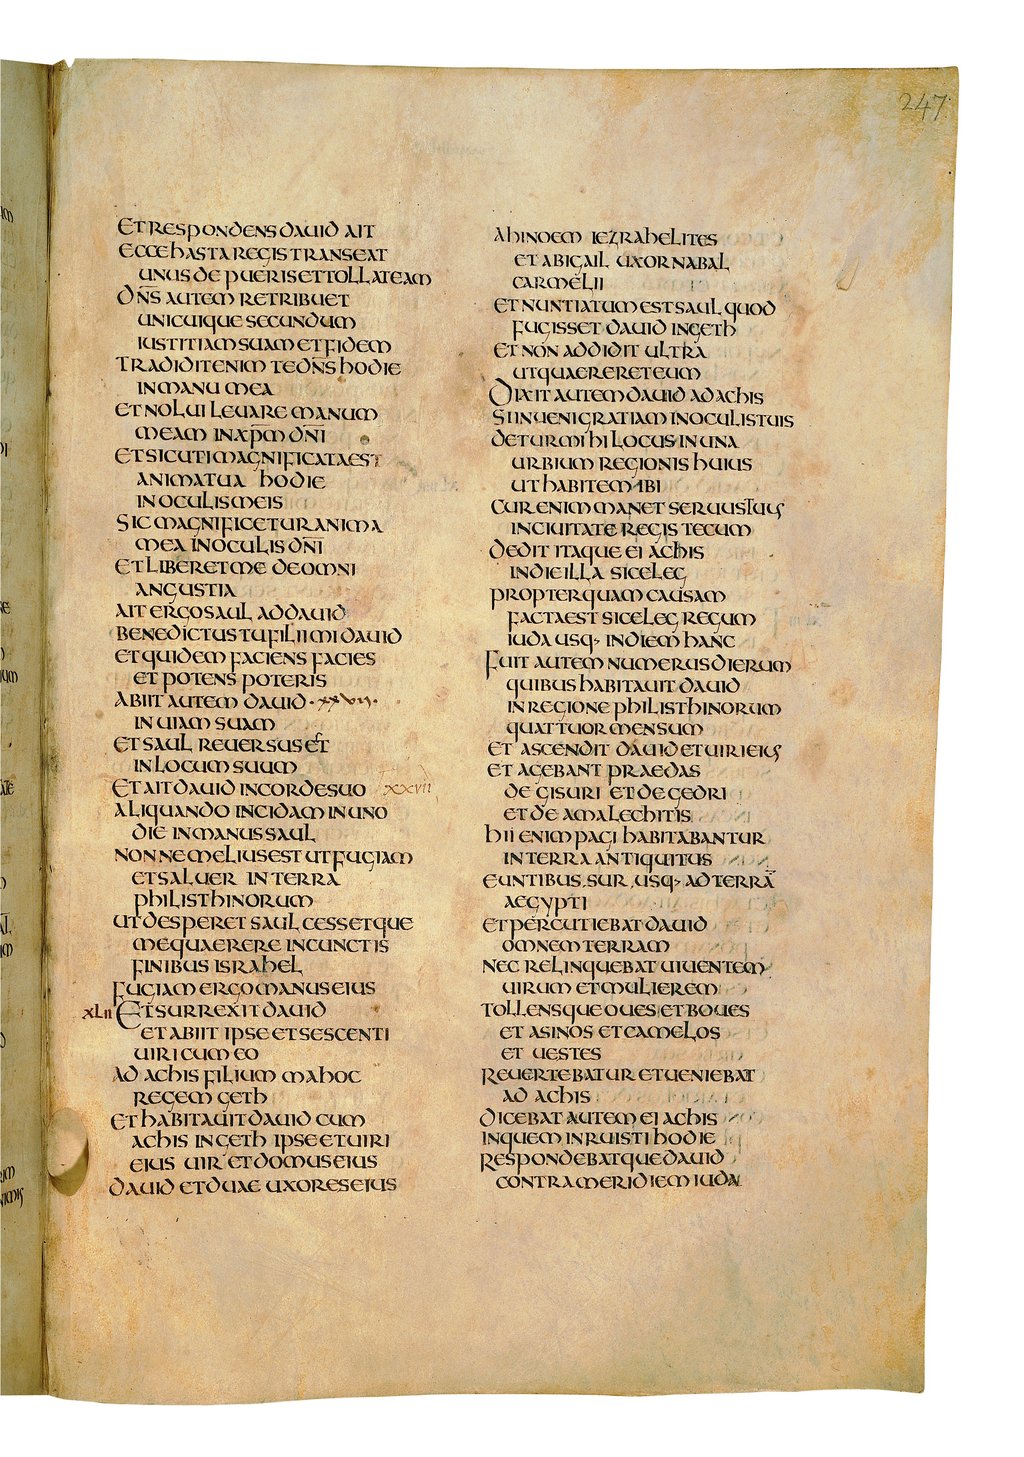 247
ET RESPONDENS DAUID AIT
ECCE HASTA REGIS TRANSEAT
UNUS DE PUERIS ET TOLLAT EAM
DN̄S AUTEM RETRIBUET
UNICUIQUE SECUNDUM
IUSTITIAM SUAM ET FIDEM
TRADIDIT ENIM TE DN̄S HODIE
IN MANU MEA
ET NOLUI LEUARE MANUM
MEAM IN XP̄M DN̄I
ET SICUTI MAGNIFICATA EST
ANIMA TUA HODIE
IN OCULIS MEIS
SIC MAGNIFICETUR ANIMA
MEA IN OCULIS DN̄I
ET LIBERET ME DE OMNI
ANGUSTIA
AIT ERGO SAUL AD DAUID
BENEDICTUS TU FILI MI DAUID
ET QUIDEM FACIENS FACIES
ET POTENS POTERIS
ABIIT AUTEM DAUID · xxvii ·
IN UIAM SUAM
ET SAUL REUERSUS EST
IN LOCUM SUUM
ET AIT DAUID IN CORDE SUO XXVII
ALIQUANDO INCIDAM IN UNO
DIE IN MANUS SAUL
NONNE MELIUS EST UT FUGIAM
ET SALUER IN TERRA
PHILISTHINORUM
UT DESPERET SAUL CESSETQUE
ME QUAERERE IN CUNCTIS
FINIBUS ISRAHEL
FUGIAM ERGO MANUS EIUS
XLII ET SURREXIT DAUID
ET ABIIT IPSE ET SESCENTI
UIRI CUM EO
AD ACHIS FILIUM MAHOC
REGEM GETH
ET HABITAUIT DAUID CUM
ACHIS IN GETH IPSE ET UIRI
EIUS UIR ET DOMUS EIUS
DAUID ET DUAE UXORES EIUS
AHINOEM IEZRAHELITES
ET ABIGAIL UXOR NABAL
CARMELII
ET NUNTIATUM EST SAUL QUOD
FUGISSET DAUID IN GETH
ET NON ADDIDIT ULTRA
UT QUAERERET EUM
DIXIT AUTEM DAUID AD ACHIS
SI INUENI GRATIAM IN OCULIS TUIS
DETUR MIHI LOCUS IN UNA
URBIUM REGIONIS HUIUS
UT HABITEM IBI
CUR ENIM MANET SERUUS TUUS
IN CIUITATE REGIS TECUM
DEDIT ITAQUE EI ACHIS
IN DIE ILLA SICELEG
PROPTER QUAM CAUSAM
FACTA EST SICELEG REGUM
IUDA USQ· IN DIEM HANC
FUIT AUTEM NUMERUS DIERUM
QUIBUS HABITAUIT DAUID
IN REGIONE PHILISTHINORUM
QUATTUOR MENSUM
ET ASCENDIT DAUID ET UIRI EIUS
ET AGEBANT PRAEDAS
DE GISURI ET DE GEDRI
ET DE AMALECHITIS
HII ENIM PAGI HABITABANTUR
IN TERRA ANTIQUITUS
EUNTIBUS SUR USQ· AD TERRĀ
AEGYPTI
ET PERCUTIEBAT DAUID
OMNEM TERRAM
NEC RELINQUEBAT UIUENTEM
UIRUM ET MULIEREM
TOLLENSQUE OUES ET BOUES
ET ASINOS ET CAMELOS
ET UESTES
REUERTEBATUR ET UENIEBAT
AD ACHIS
DICEBAT AUTEM EI ACHIS
IN QUEM INRUISTI HODIE
RESPONDEBATQUE DAUID
CONTRA MERIDIEM IUDA